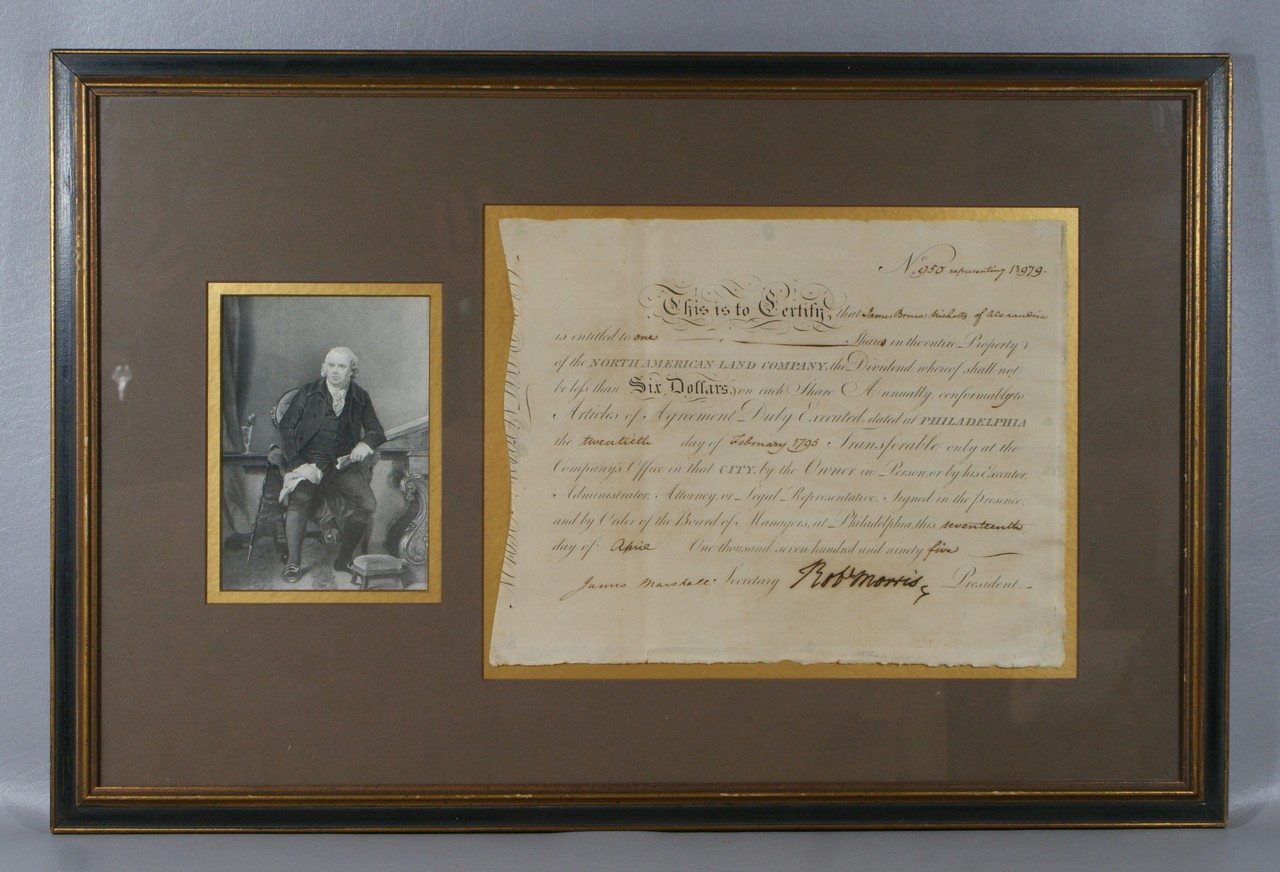 No. 950 representing 13979.
This is to Certify, that James Bruce Nicholls of Alexandria
is entitled to one Share in the entire Property
of the NORTH AMERICAN LAND COMPANY, the Dividend whereof shall not
be less than Six Dollars, on each Share Annually, conformably to
Articles of Agreement Duly Executed, dated at PHILADELPHIA
the twentieth day of February 1795 Transferable only at the
Company's Office in that CITY, by the Owner in Person, or by his Executor,
Administrator, Attorney, or Legal Representative. Signed in the presence,
and by Order of the Board of Managers, at Philadelphia, this seventeenth
day of April One thousand seven hundred and ninety five
James Marshall Secretary Robt Morris, President